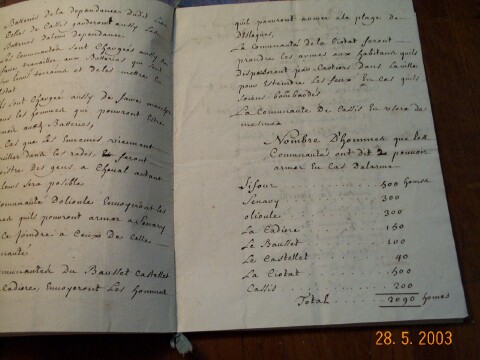 Batteries de la dependance dudit
Celles de Cassis garderont aussy les
Batteries de leur dependance
Les Communautés sont Chargées aussy de
faire travailler aux Batteries qui sont
sur leurs terroirs et de les mettre en
estat
sont Chargées aussy de faire marcher
tous les hommes que pourront estre
Batteries,
cas que les Ennemis vinssent
dans les rades, feront
des gens a Cheval autant
Leur Sera posible
Communauté Dolioule Envoyeront les
quils pouvront armer a Senary
se joindre a Ceux De Celle
Communautés du Bausset Castellet
Cadiere, Envoyeront Les hommes
quils pouvront armer a la plage de
deslegues,
La Communauté de la Ciotat feront
prendre les armes aux habitans quils
disposeront par quartiers dans la ville
pour Esteindre les feux En cas quils
soient bombardés
La Communauté De Cassis En usera de
mesmes
Nombre D'hommes que les
Communautés ont dit pouvoir
armer En Cas Dalarme
Sifour 500 homes
Senary 300
olioule 300
La Cadiere 150
Le Bausset 100
Le Castellet 40
La Ciotat 500
Cassis 200
Total 2090 homes
28. 5. 2003